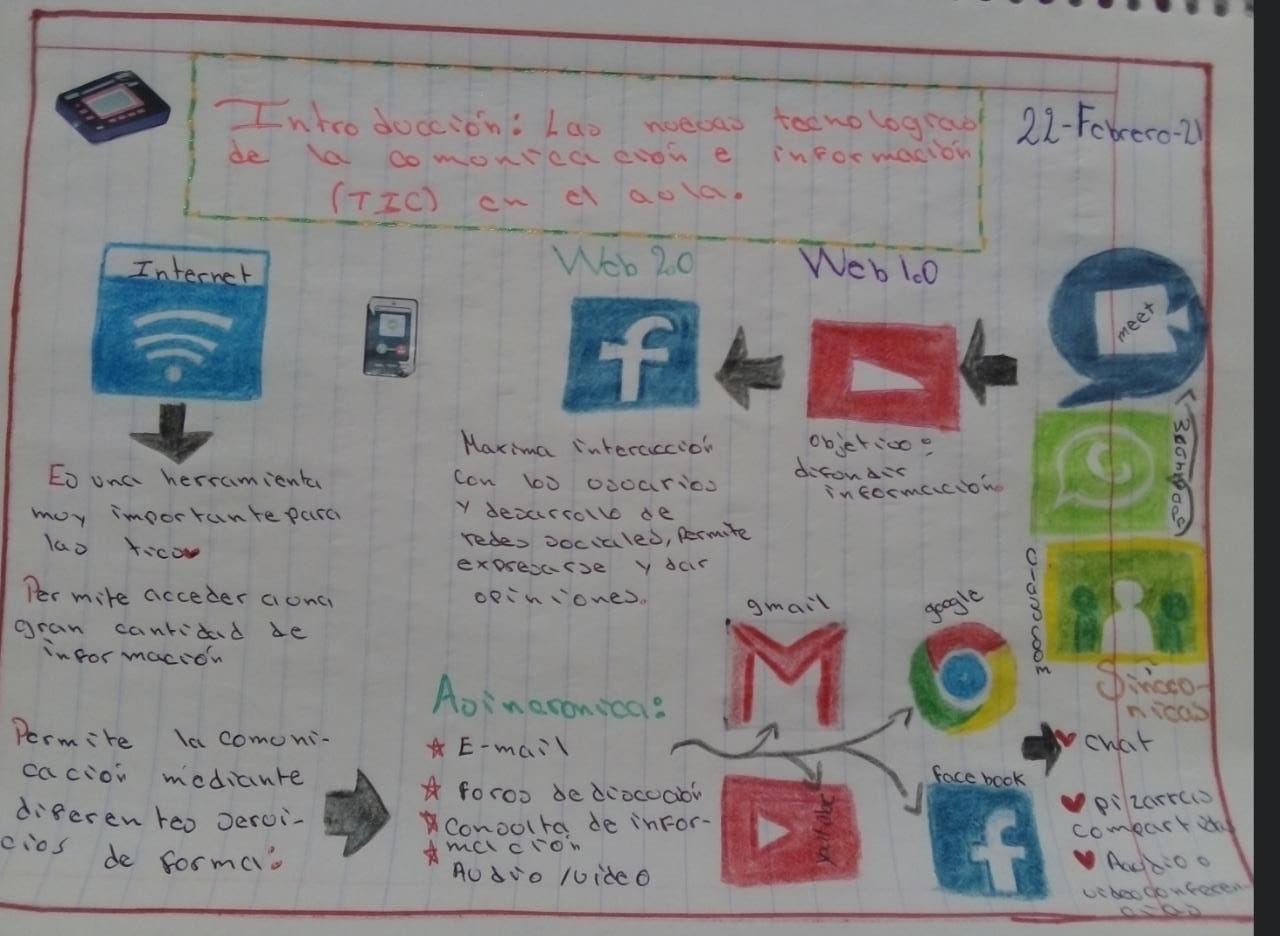 Introducción: Las nuevas tecnologias
de la comonicación e información
(TIC) en el aula.
22-Febrero-21
Internet
Es una herramienta
muy importante para
las tics
Permite acceder a una
gran cantidad de
información
Permite la comuni-
cación mediante
diferentes servi-
cios de forma:
Web 2.0
Maxima interacción
con los usuarios
y desarrollo de
redes sociales, Permite
expresarse y dar
opiniones.
Web 1.0
Objetivo:
difundir
información
meet
WhatsApp
Classroom
Asincronica:
E-mail
Foros de discusión
Consulta de infor-
mación
Audio/video
gmail
google
youtube
facebook
Síncro-
nicas
chat
pizarras
compartidas
Audio o
videoconferen-
cias